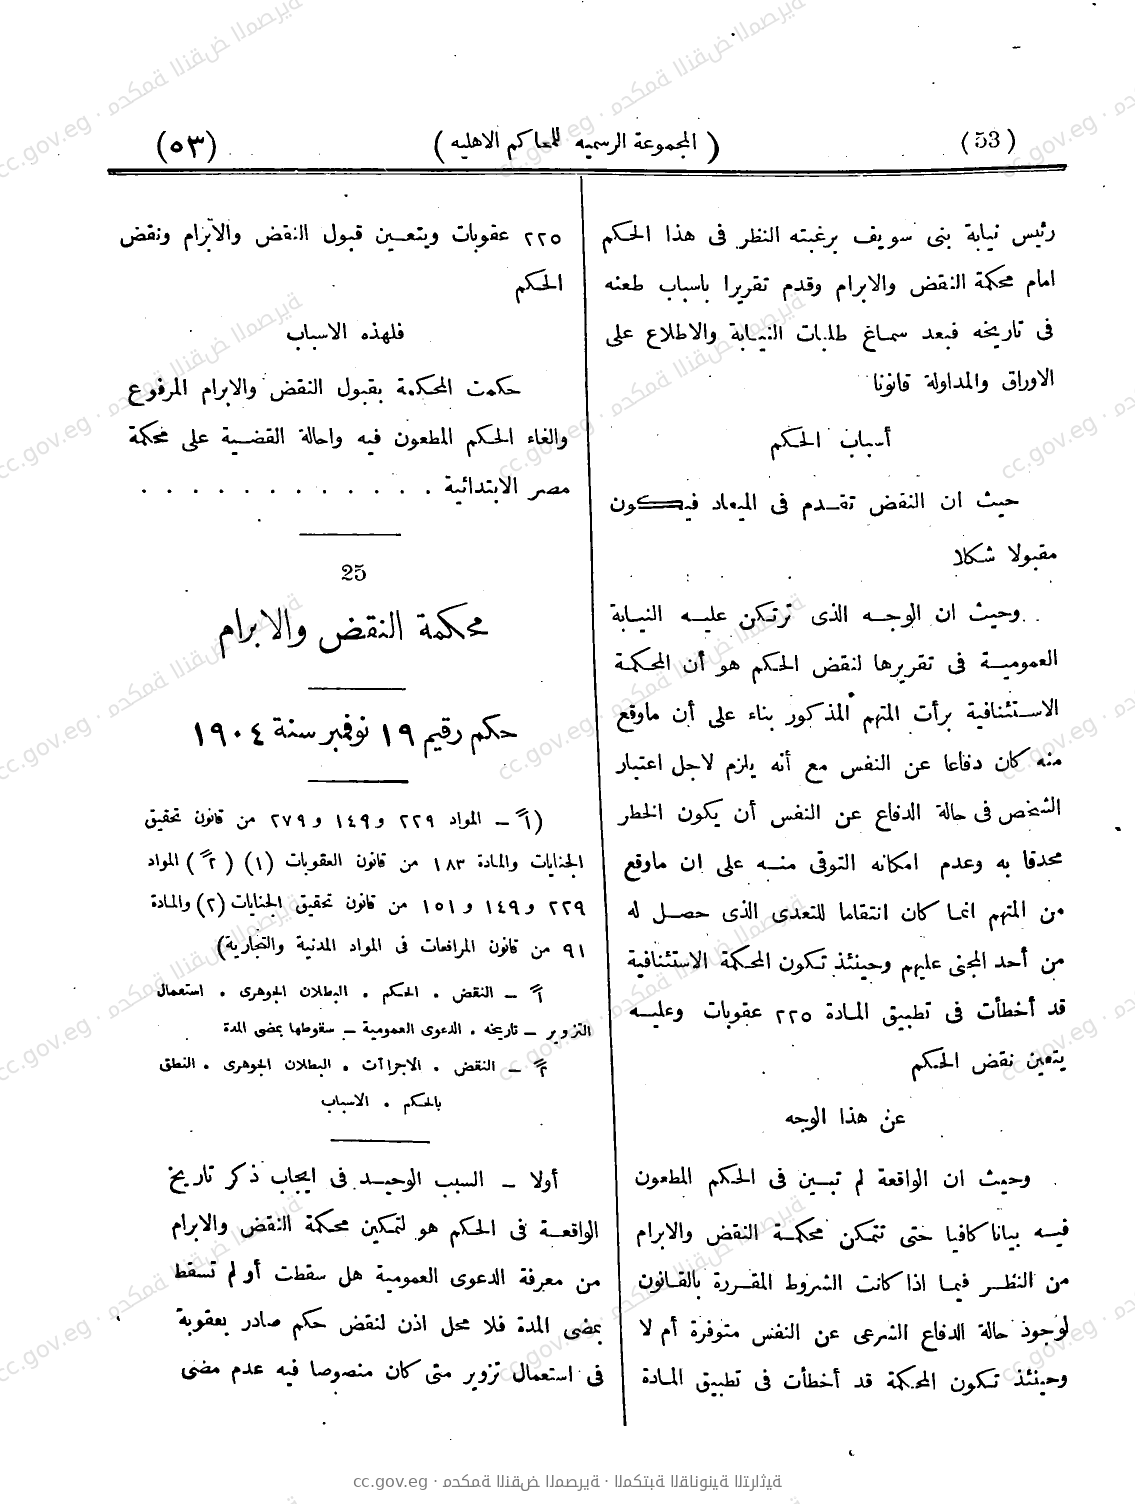 (53)
( المجموعة الرسميه للمحاكم الاهليه )
(٥٣)
رئيس نيابة بنى سويف برغبته النظر فى هذا الحكم
امام محكمة النقض والابرام وقدم تقريرا باسباب طعنه
فى تاريخه فبعد سماع طلبات النيابة والاطلاع على
الاوراق والمداولة قانونا
أسباب الحكم
حيث ان النقض تقدم فى الميعاد فيكون
مقبولا شكلا
وحيث ان الوجه الذى ترتكن عليه النيابة
العمومية فى تقريرها لنقض الحكم هو أن المحكمة
الاستئنافية برأت المتهم المذكور بناء على أن ماوقع
منه كان دفاعا عن النفس مع أنه يلزم لاجل اعتبار
الشخص فى حالة الدفاع عن النفس أن يكون الخطر
محدقا به وعدم امكانه التوقى منه على ان ماوقع
من المتهم انما كان انتقاما للتعدى الذى حصل له
من أحد المجنى عليهم وحينئذ تكون المحكمة الاستئنافية
قد أخطأت فى تطبيق المادة ٢٢٥ عقوبات وعليه
يتعين نقض الحكم
عن هذا الوجه
وحيث ان الواقعة لم تبين فى الحكم المطعون
فيه بيانا كافيا حتى تتمكن محكمة النقض والابرام
من النظر فيما اذا كانت الشروط المقررة بالقانون
لوجود حالة الدفاع الشرعى عن النفس متوفرة أم لا
وحينئذ تكون المحكمة قد أخطأت فى تطبيق المادة
٢٢٥ عقوبات ويتعين قبول النقض والابرام ونقض
الحكم
فلهذه الاسباب
حكمت المحكمة بقبول النقض والابرام المرفوع
والغاء الحكم المطعون فيه واحالة القضية على محكمة
مصر الابتدائية . . . . . . . . . . . .
25
محكمة النقض والابرام
حكم رقيم ١٩ نوفمبر سنة ١٩٠٤
(١ً – المواد ٢٢٩ و١٤٩ و٢٧٩ من قانون تحقيق
الجنايات والمادة ١٨٣ من قانون العقوبات (١) (٢ً) المواد
٢٢٩ و١٤٩ و١٥١ من قانون تحقيق الجنايات (٢) والمادة
٩١ من قانون المرافعات فى المواد المدنية والتجارية)
١ً – النقض . الحكم . البطلان الجوهرى . استعمال
التزوير – تاريخه . الدعوى العمومية – سقوطها بمضى المدة
٢ً – النقض . الاجراآت . البطلان الجوهرى . النطق
بالحكم . الاسباب
أولا – السبب الوحيد فى ايجاب ذكر تاريخ
الواقعة فى الحكم هو لتمكين محكمة النقض والابرام
من معرفة الدعوى العمومية هل سقطت أو لم تسقط
بمضى المدة فلا محل اذن لنقض حكم صادر بعقوبة
فى استعمال تزوير متى كان منصوصا فيه عدم مضى
cc.gov.eg · محكمة النقض المصرية · المكتبة القانونية التراثية